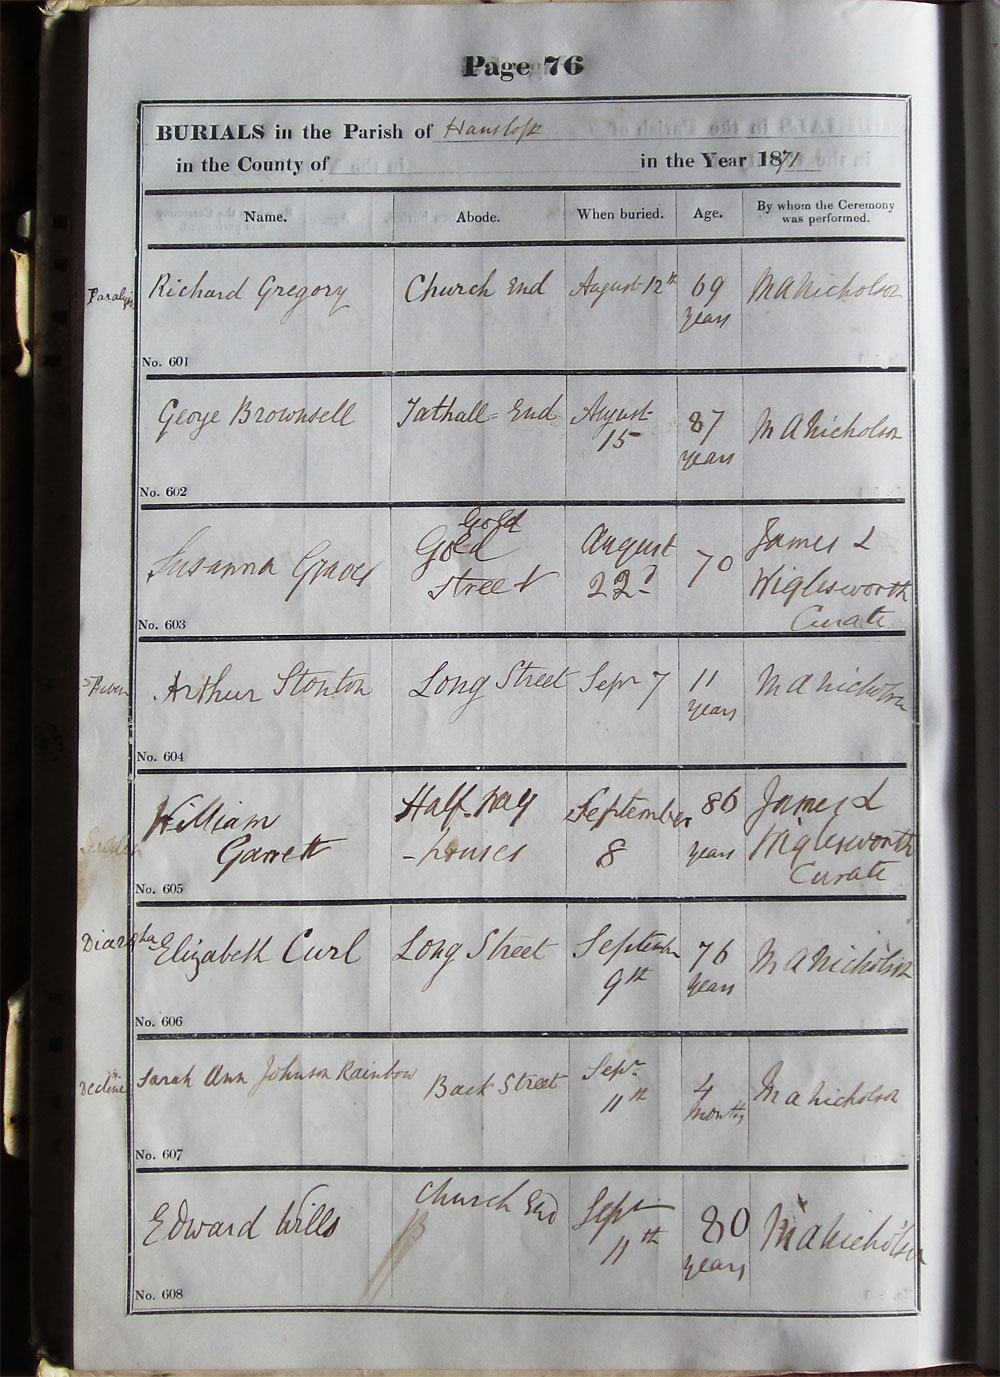 Page 76
BURIALS in the Parish of Hanslope
in the County of in the Year 1871
Name. Abode. When buried. Age. By whom the Ceremony was performed.
Richard Gregory Church End August 12th 69 years M A Nicholson
No. 601
George Brownsell Tathall-End August 15 87 years M A Nicholson
No. 602
Gold
Susanna Graves Gold Street August 22d 70 James L Wiglesworth Curate
No. 603
Fever Arthur Stonton Long Street Sepr 7 11 years M A Nicholson
No. 604
William Garrett Half-way -houses September 8 86 years James L Wiglesworth Curate
No. 605
Elizabeth Curl Long Street September 9th 76 years M A Nicholson
No. 606
Decline Sarah Ann Johnson Rainbow Back Street Sepr 11th 4 Months M A Nicholson
No. 607
Edward Wills Church End Sepr 11th 80 years M A Nicholson
No. 608